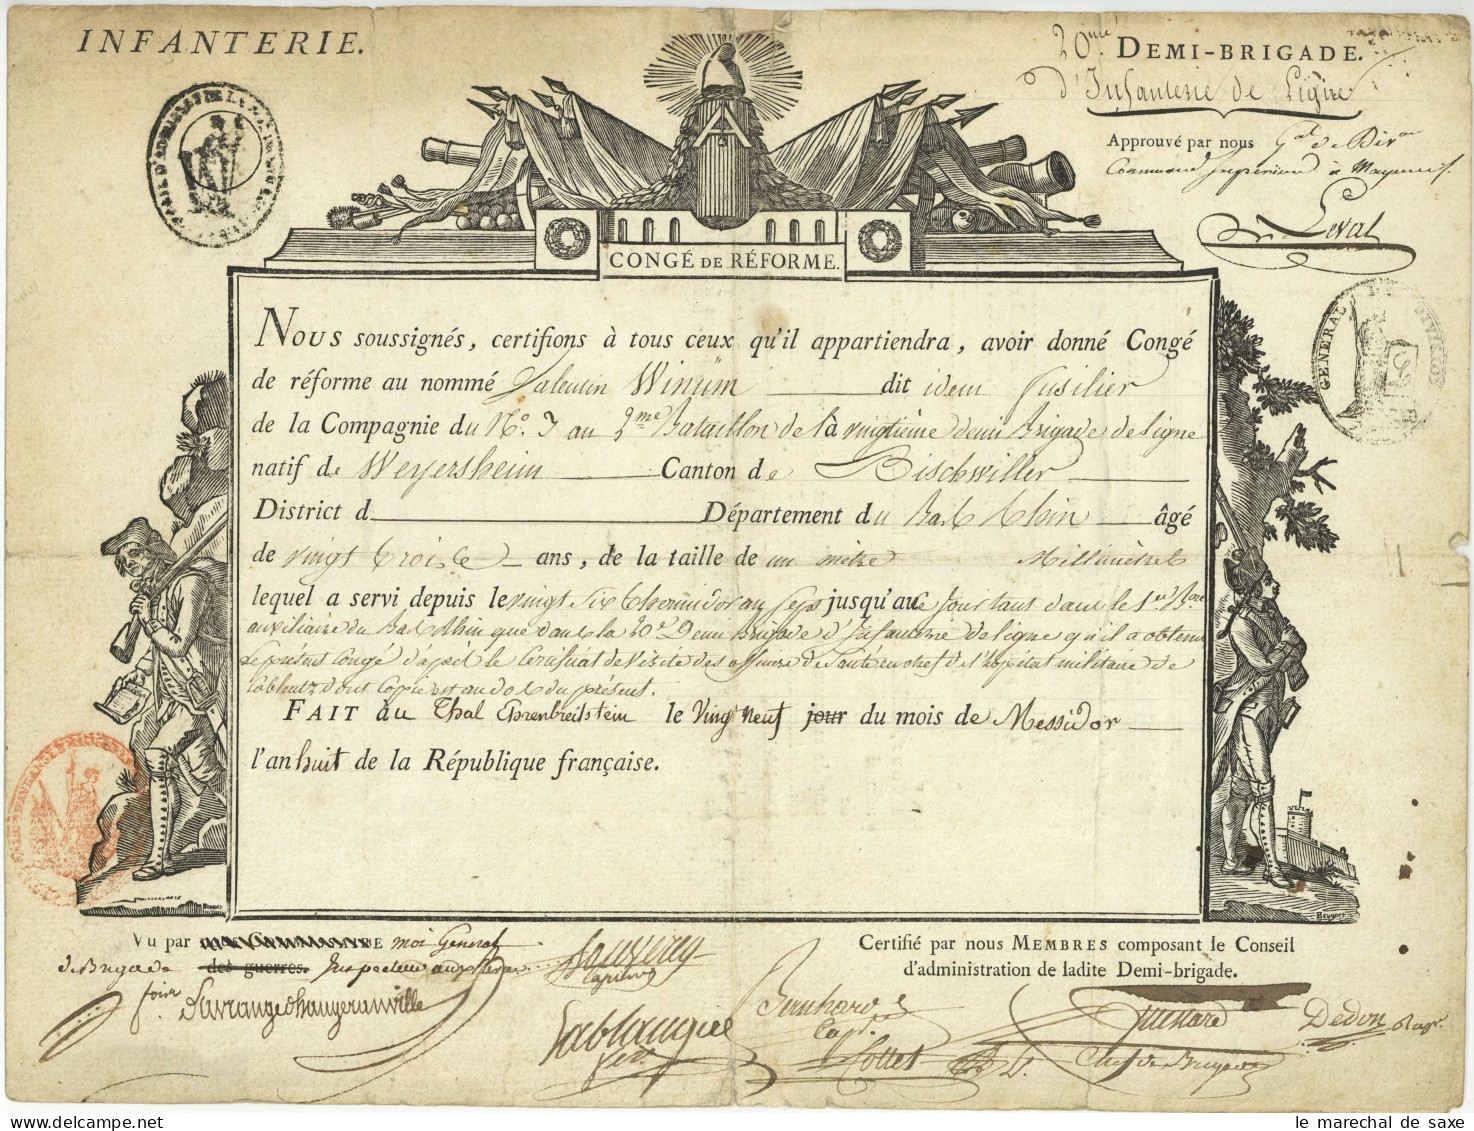 INFANTERIE.
20me DEMI-BRIGADE.
d'Infanterie de Ligne
Approuvé par nous Gal de Divon
Commandt Supérieur à Mayence
Leval
CONGÉ DE RÉFORME.
GENERAL DE DIVISION
NOUS soussignés, certifions à tous ceux qu'il appartiendra, avoir donné Congé
de réforme au nommé Valentin Winüm dit idem fusilier
de la Compagnie du No. 7 au 2me Bataillon de la vingtième demi Brigade de ligne
natif de Weyersheim Canton de Bischwiller
District d Département du Bas Rhin âgé
de vingt trois ans, de la taille de un mètre Millimètres
lequel a servi depuis le vingt Six thermidor an Sept jusqu'au ce jour tant dans le 1er Bon
auxiliaire du Bas Rhin que dans la 20e Demi Brigade d'Infanterie de ligne qu'il a obtenu
le présent Congé d'après le Certificat de Visite des officiers de Santé en chef de l'hopital militaire de
Coblentz dont Copie est au dos du présent.
FAIT au Thal Ehrenbreitstein le Vingt Neuf jour du mois de Messidor
l'an huit de la République française.
Vu par moi General
de Brigade des guerres. Inspecteur aux
Lavrange
Certifié par nous MEMBRES composant le Conseil
d'administration de ladite Demi-brigade.
Capne
Lablanque
Bernhard
Capne
Cottet
Quenard
Chef de Brigade
Dedon
le marechal de saxe